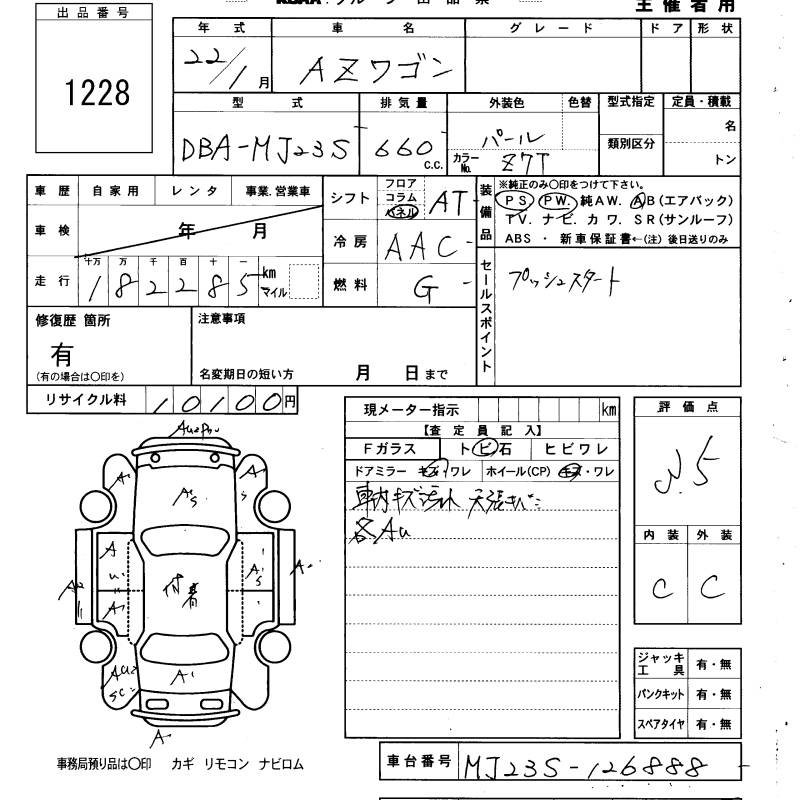 出品番号
1228
主催者用
年式 車名 グレード ドア 形状
22/1月 AZワゴン
型式 排気量 外装色 色替 型式指定 定員・積載
DBA-MJ23S 660 c.c. パール 類別区分 名
カラーNo. Z7T トン
車歴 自家用 レンタ 事業.営業車
車検 年 月
走行 十万 万 千 百 十 一
182285 km マイル
シフト フロア コラム パネル AT
冷房 AAC
燃料 G
装備品 ※純正のみ〇印をつけて下さい。
PS PW. 純AW. AB(エアバック)
TV. ナビ. カワ. SR(サンルーフ)
ABS ・ 新車保証書←(注) 後日送りのみ
セールスポイント プッシュスタート
修復歴 箇所
有
(有の場合は〇印を)
注意事項
名変期日の短い方 月 日まで
リサイクル料 10100円
現メーター指示 km
【査定員記入】
Fガラス トビ石 ヒビワレ
ドアミラー キズ・ワレ ホイール(CP) キズ・ワレ
各AU
評価点
内装 外装
C C
A
付着
A
ジャッキ工具 有・無
パンクキット 有・無
スペアタイヤ 有・無
事務局預り品は〇印 カギ リモコン ナビロム
車台番号 MJ23S-126888